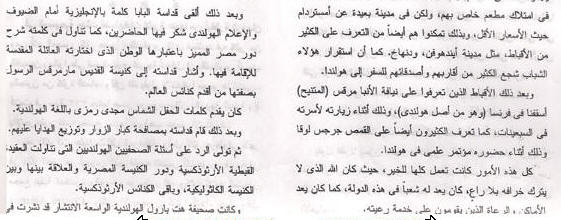 فى امتلاك مطعم خاص بهم، ولكن فى مدينة بعيدة عن أمستردام
حيث الأسعار الأقل، وبذلك تمكنوا هم أيضاً من التعرف على الكثير
من الأقباط، مثل مدينة أيندهوفن، ودنهاخ. كما أن استقرار هؤلاء
الشباب شجع الكثير من أقاربهم وأصدقائهم للسفر إلى هولندا.
وبعد ذلك الأقباط الذين تعرفوا على نيافة الأنبا مرقس (المتنيح)
أسقفنا فى فرنسا (وهو من أصل هولندى)، وذلك أثناء زيارته لأسرته
فى السبعينات، كما تعرف الكثيرون أيضاً على القمص جرجس لوقا
وذلك أثناء حضوره مؤتمر علمى فى هولندا.
كل هذه الأمور كانت تعمل كلها للخير، حيث كان الله الذى لا
يترك خرافه بلا راعٍ، كان يعد له شعباً فى هذه الدولة، كما كان يعد
الأماكن، والرعاة الذين يقومون على خدمة رعيته.
وبعد ذلك ألقى قداسة البابا كلمة بالإنجليزية أمام الضيوف
والإعلام الهولندى شكر فيها الحاضرين، كما تناول فى كلمته شرح
دور مصر المميز باعتبارها الوطن الذى اختارته العائلة المقدسة
للإقامة فيها. وأشار قداسته إلى كنيسة القديس مارمرقس الرسول
بصفتها من أقدم كنائس العالم.
كان يقدم كلمات الحفل الشماس مجدى رمزى باللغة الهولندية.
وبعد ذلك قام قداسته بمصافحة كبار الزوار وتوزيع الهدايا عليهم.
ثم تولى الرد على أسئلة الصحفيين الهولنديين التى تناولت العقيدة
القبطية الأرثوذكسية ودور الكنيسة المصرية والعلاقة بينها وبين
الكنيسة الكاثوليكية، وباقى الكنائس الأرثوذكسية.
وكانت صحيفة هت بارول الهولندية الواسعة الانتشار قد نشرت فى